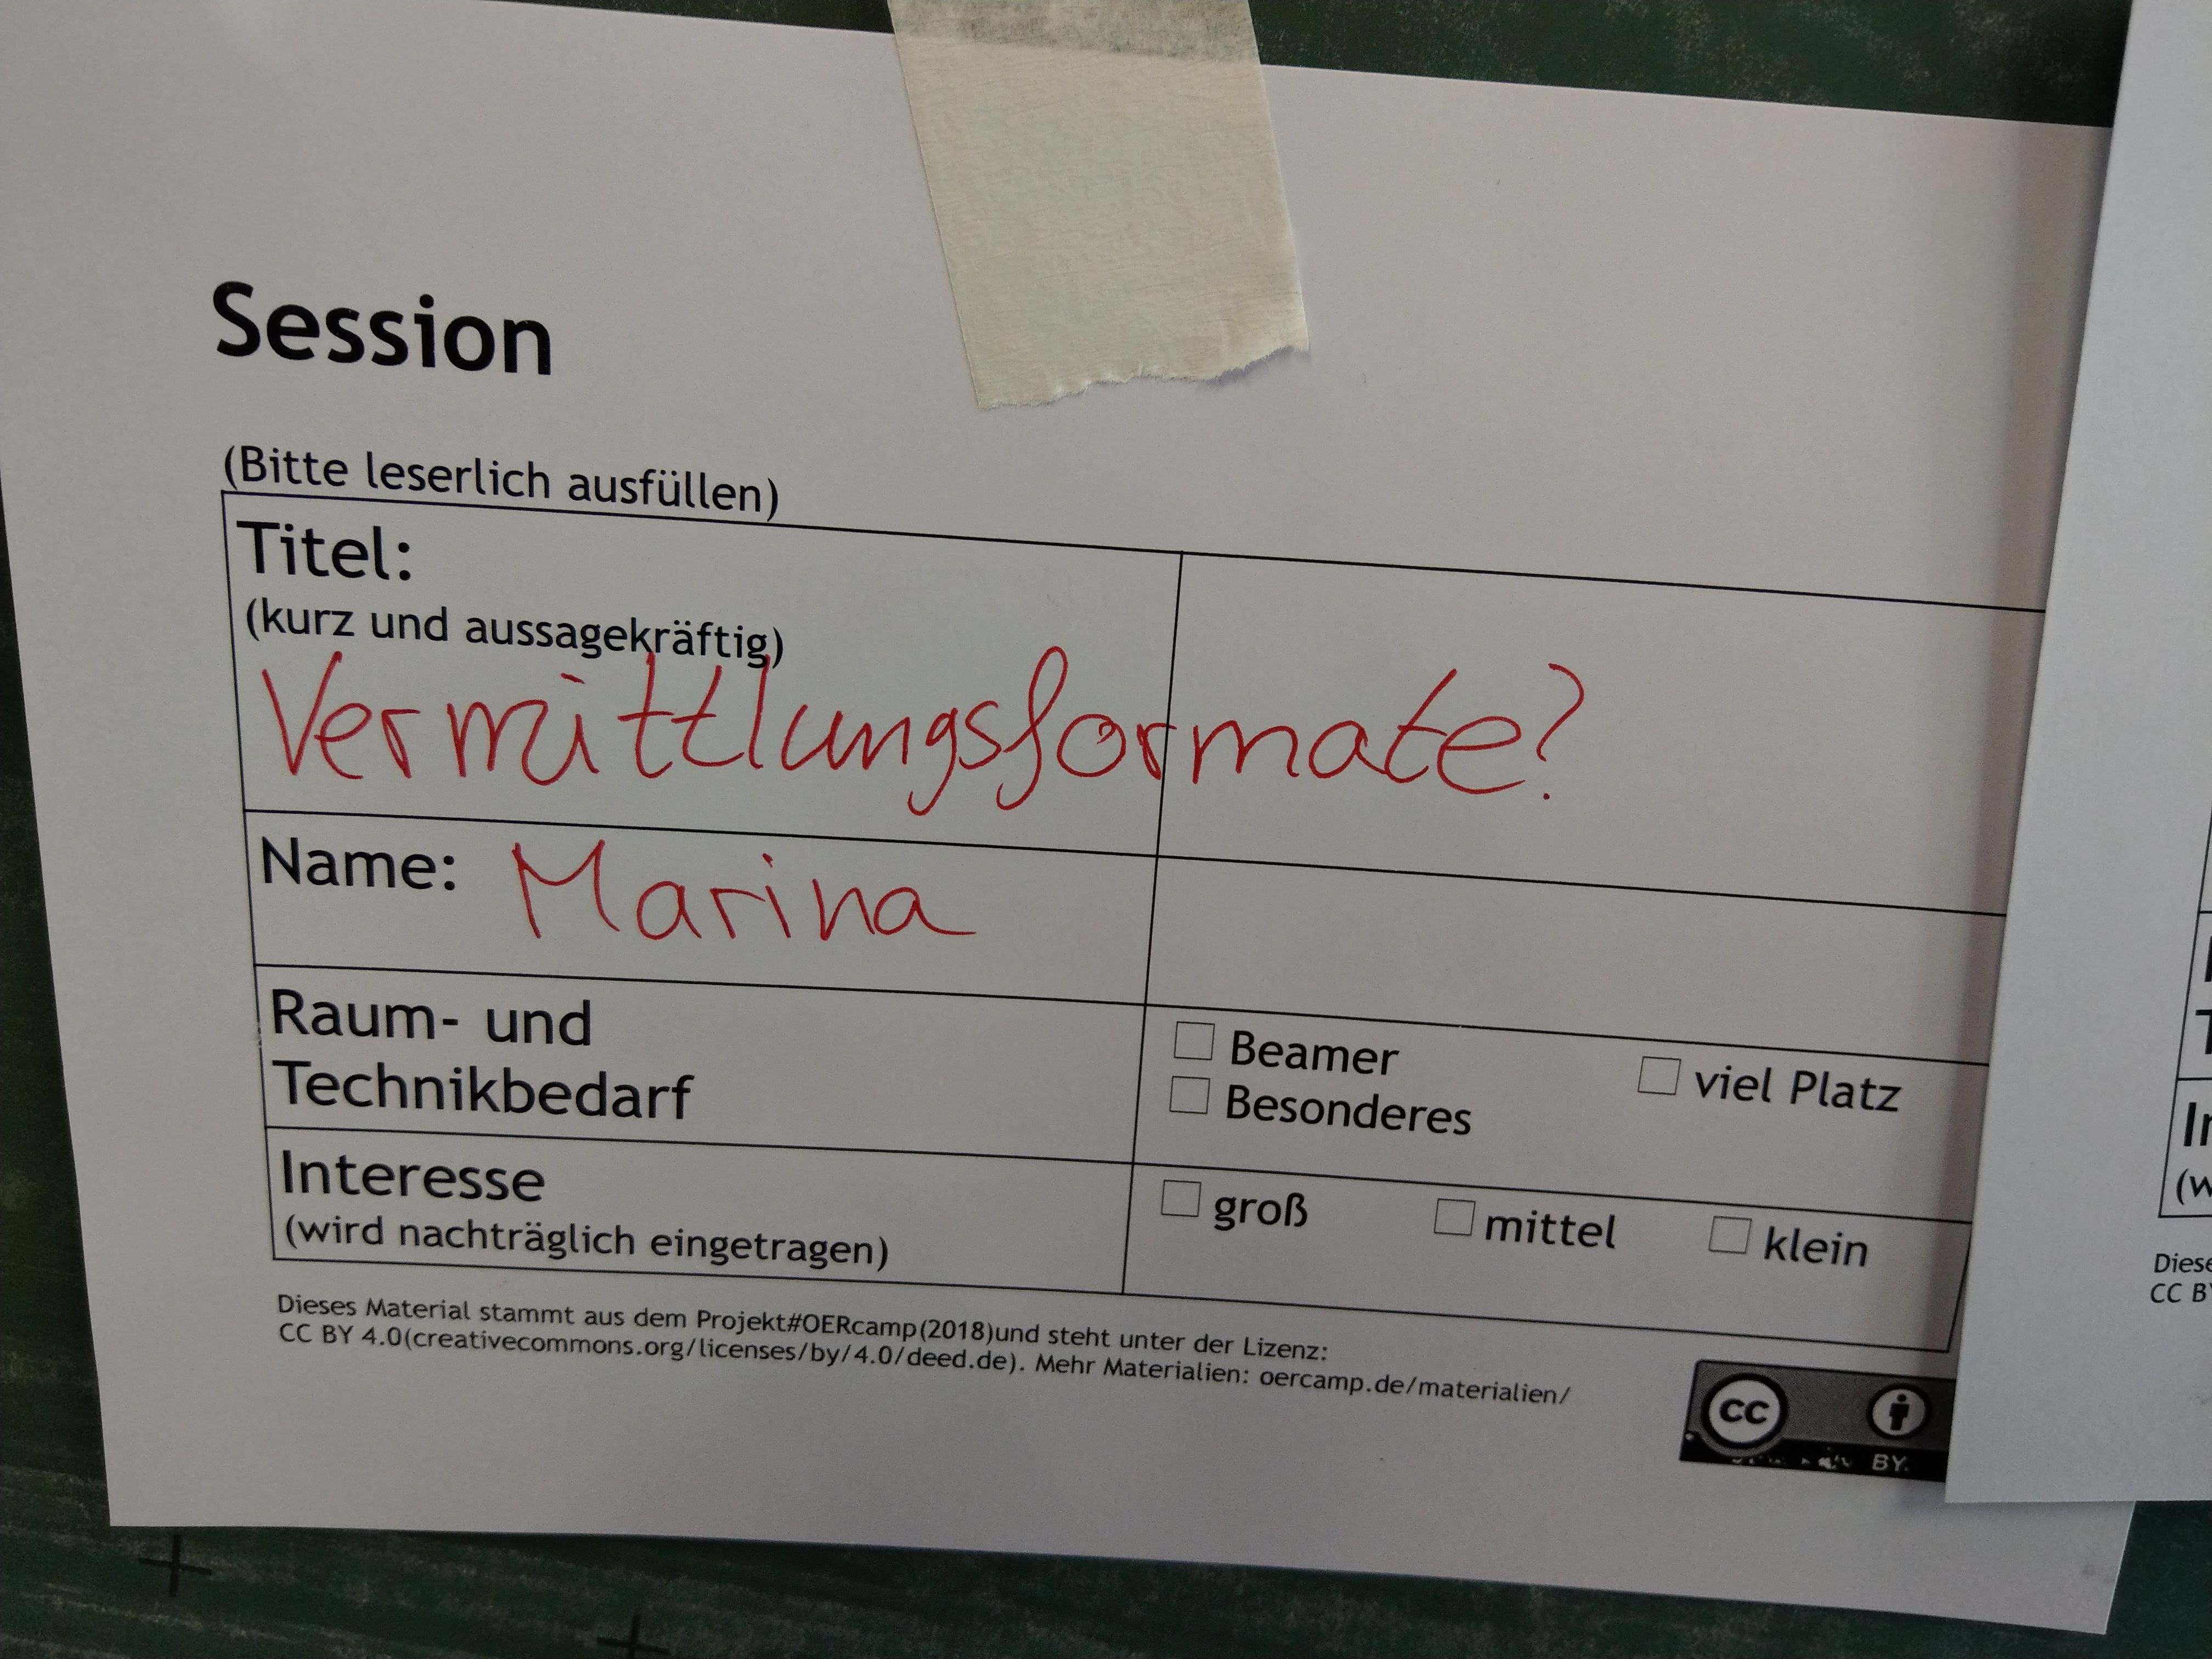 Session
(Bitte leserlich ausfüllen)
Titel:
(kurz und aussagekräftig)
Vermittlungsformate?
Name: Marina
Raum- und
Technikbedarf
Beamer
viel Platz
Besonderes
Interesse
(wird nachträglich eingetragen)
groß mittel klein
Dieses Material stammt aus dem Projekt#OERcamp(2018)und steht unter der Lizenz:
CC BY 4.0(creativecommons.org/licenses/by/4.0/deed.de). Mehr Materialien: oercamp.de/materialien/
CC
BY
(w
Diese
CC BY